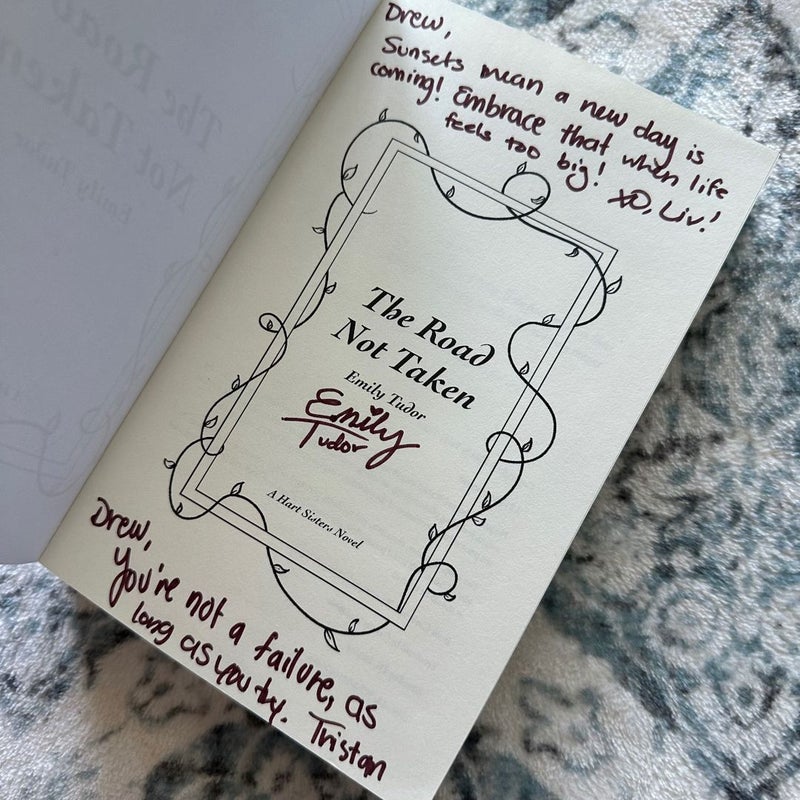 Drew,
Sunsets mean a new day is
coming! Embrace that when life
feels too big! XO, Liv!
The Road
Not Taken
Emily Tudor
Emily
Tudor
A Hart Sisters Novel
Drew,
You're not a failure, as
long as you try. Tristan
The Road
Not Taken
Emily Tudor